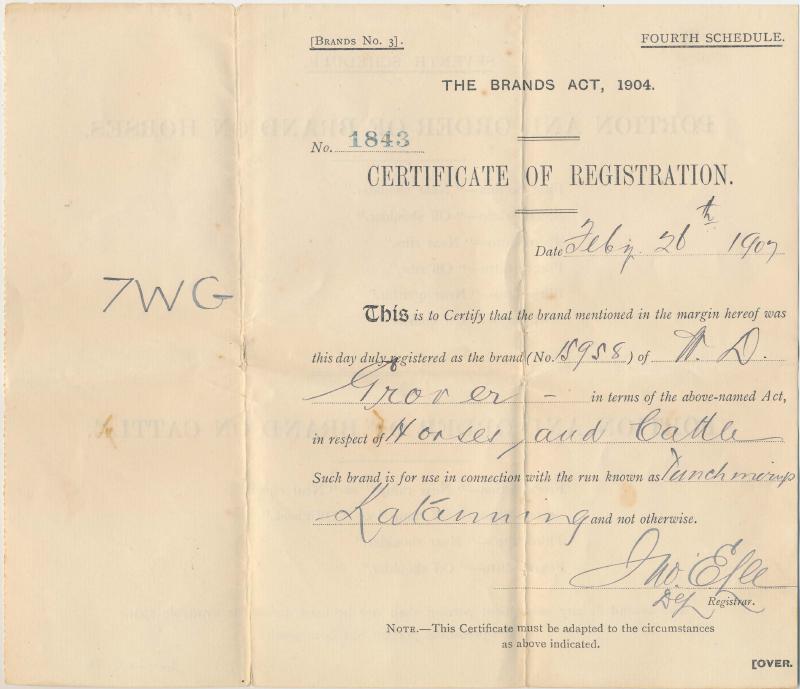 [BRANDS No. 3].
FOURTH SCHEDULE.
THE BRANDS ACT, 1904.
No. 1843
CERTIFICATE OF REGISTRATION.
Date Feby. 26th 1907
7WG
This is to Certify that the brand mentioned in the margin hereof was
this day duly registered as the brand (No. 15958) of W. D.
Grover – in terms of the above-named Act,
in respect of Horses, and Cattle
Such brand is for use in connection with the run known as
Katanning and not otherwise.
Jno.
Dep Registrar.
NOTE.—This Certificate must be adapted to the circumstances
as above indicated.
[OVER.